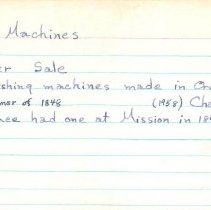 Machines
er Sale
shing machines made in Or
mer of 1848 (1958) Che
ee had one at Mission in 184